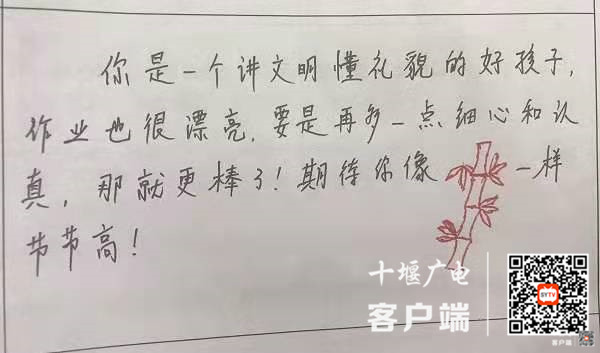 你是一个讲文明懂礼貌的好孩子,
作业也很漂亮,要是再多一点细心和认
真,那就更棒了!期待你像一样
节节高!
十堰广电
客户端
SYTV
客户端